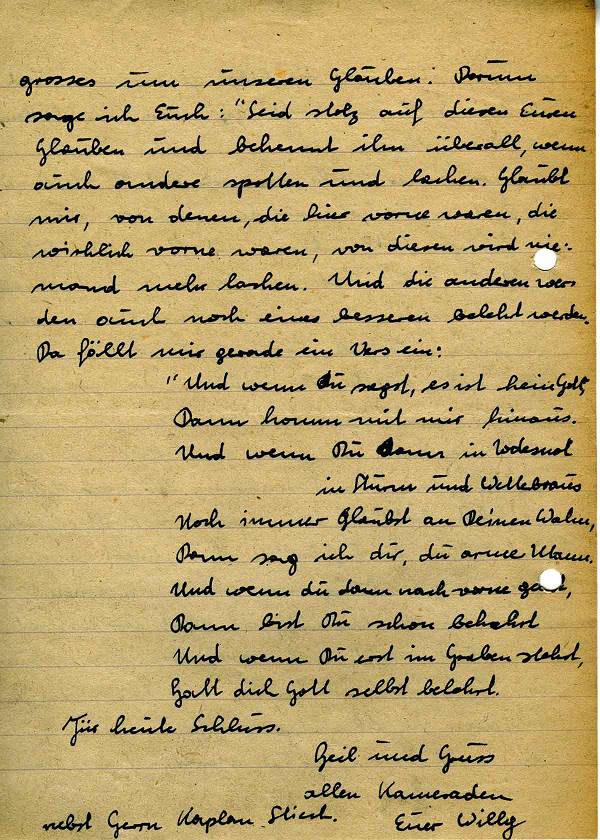 grosses um unseren Glauben. Darum
sage ich Euch: "Seid stolz auf diesen Euren
Glauben und bekennt ihn überall, wenn
auch andere spotten und lachen. Glaubt
mir, von denen, die hier vorne waren, die
wirklich vorne waren, von diesen wird nie-
mand mehr lachen. Und die anderen wer
den auch noch eines besseren belehrt werden.
Da fällt mir gerade ein Vers ein:
"Und wenn Du sagst, es ist kein Gott,
Dann komm mit mir hinaus.
Und wenn Du dann in Todesnot
in Sturm und Wellebraus
Noch immer Glaubst an Deinen Wahn,
Dann sag ich dir, du armer Mann.
Und wenn du dann nach vorne
Dann bist Du schon bekehrt
Und wenn Du erst im Graben stehst,
Hatt dich Gott selbst belehrt.
Für heute Schluss.
Heil und Gruss
allen Kameraden
nebst Herrn Kaplan
Euer Willy